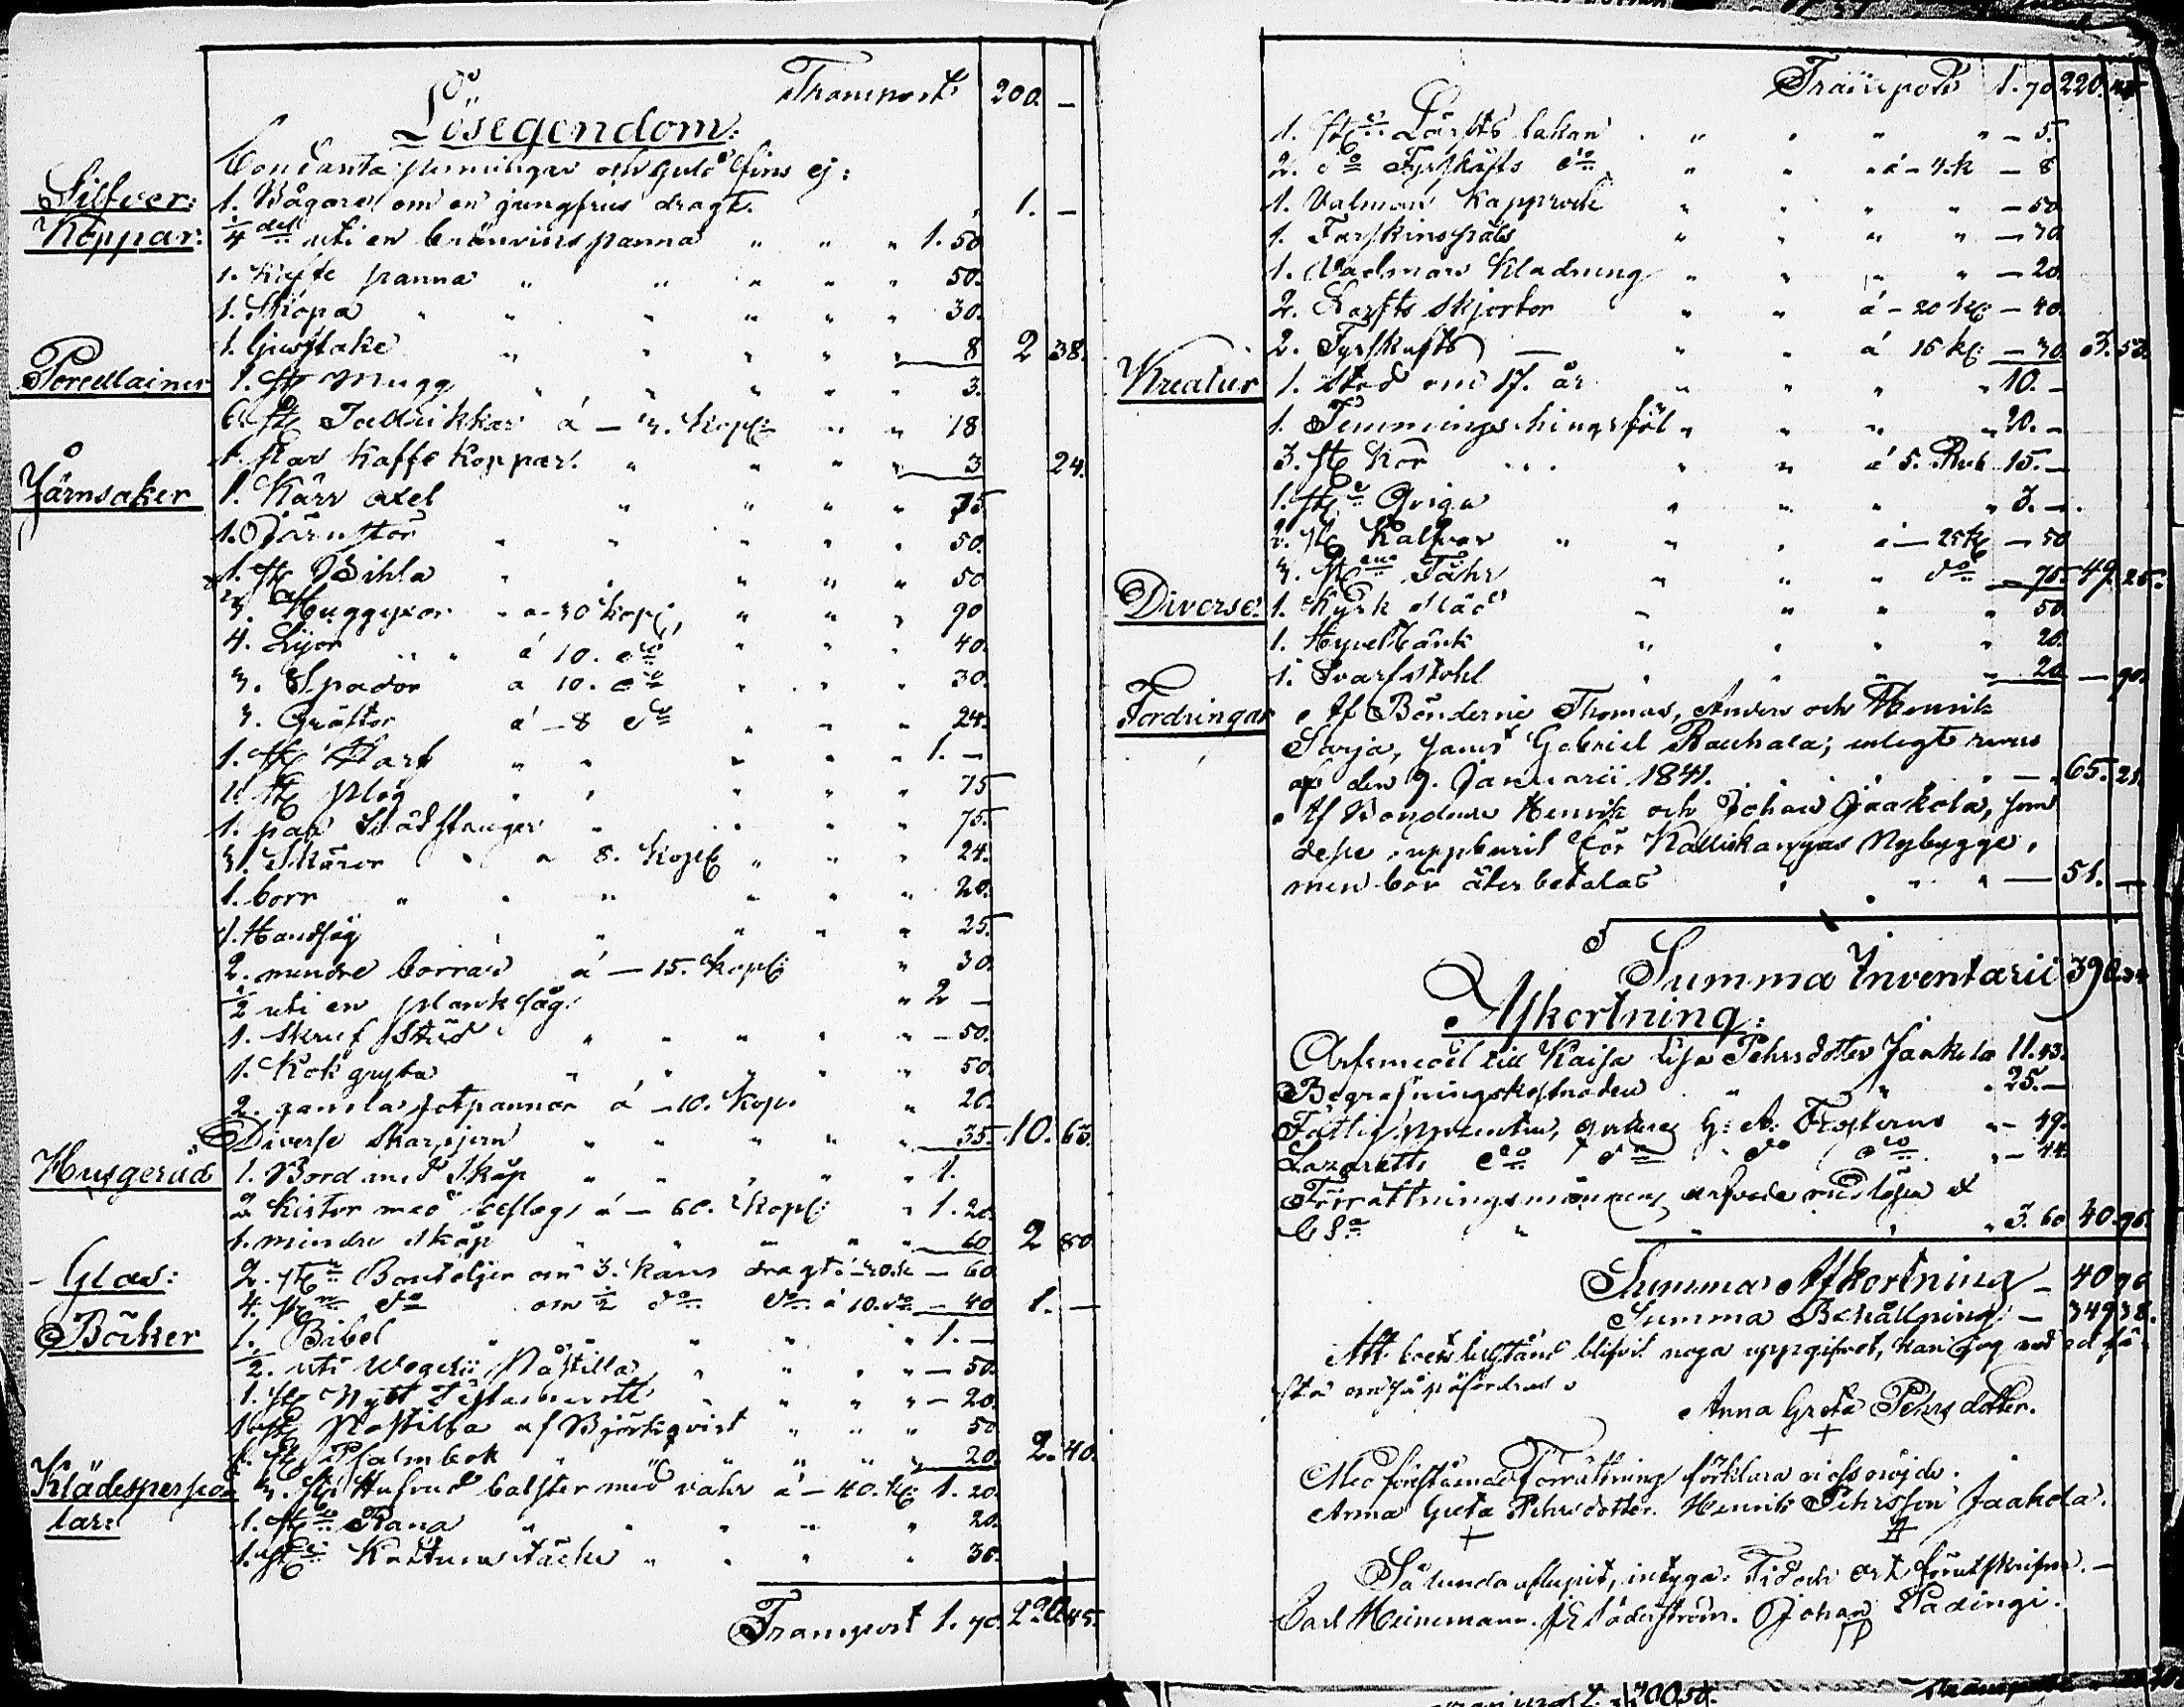 Transport 200. —
Lösegendom:
Contanta penningar och guld fins ej:
Silfver: 1. Bågare om en jungfrus dragt. 1. —
Koppar: 1/4 del uti en brännvins panna " " " 1. 50
1. Kaffe panna " " " " " 50.
1. Skopa " " " " " 30.
1. ljusstake " " " " 8 2 38.
Porcellainer 1. st Mugg " " " " 3.
6. st Talldrikkar á — 3. Kop: " " 18
1. par Kaffe Koppar. " " " " 3 24.
Järnsaker 1. Kärr axel " " " " 75
1. Järnstör " " " " " 50.
1. st Bihla " " " " " 50
3. Huggyxor " a 30 Kop: " " " 90
4. Lijor " " á 10. do " " " 40.
3. Spador a 10. do " " " 30.
3. Gräftor á — 8 do " " " 24.
1. st Harf " " " " " 1. —
1. st plog " " " " " 75
1. par Skådstänger " " " " 75.
3. Skäror " a 8. Kop: " " " 24.
1. borr " " " " " " 20.
1. Handsåg " " " " " 25.
2. mindre borrar á — 15. Kop: " 30
1/2 uti en planksåg: " 2 —
1. Skruf Städ " " " " " — 50.
1. Kok gryta " " " " " 50.
2. gamla fotpannor á — 10. Kop: " 20.
Diverse Skarpjern " " " " " 35. 10. 63.
Husgeråd 1. Bord med Skåp " " " " " 1.
2 Kistor med beslag, á — 60. Kop: " 1. 20.
1. mindre skåp " " " " " 60 2 80
Glas: 2. st Bouteljer om 3. kans dragt á 30. k — 60
4. st do om 1/2 do do á 10. do — 40 1. —
Böcker 1. Bibel " " " " " 1. —
1/2 uti Wegelii Påstilla, " " " " — 50.
1. st Nytt Testamente " " " " — 20.
1. st Postilla af Björkqvist " " " 50
1. st Psalmbok " " " " " 20. 2. 40.
Klädespersedlar: 3. st Hufvud bolster med vahr á — 40. k: 1. 20.
1. st Rana " " " " " 20.
1. st Kattuns täcke " " " " 30.
Transport 1. 70. 220. 45.
Transport 1. 70 220. 45
1. st Lärfts lakan " " " " — 5.
2. do Fyrskäfts do " " " á — 4. k — 8
1. Valmans Kapprock " " " " — 50
1. Fårskinspäls " " " " — 30
1. Vadmans Kladning " " " " — 20.
2. Larfts skjortor " " á — 20 k: — 40.
2. Fyrskafts — " " á 15 k: — 30. 3. 53.
Kreatur 1. Stod om 17. år " " " " 10. —
1. Temmings hingsföl " " " " 20. —
3. st Kor " " á 5. Rub 15. —
1. st Qviga " " " " 3. —
2. st Kalfvar " " " á — 25 k — 50
3. st Fåhr " " " do — 75. 49. 25.
Diverse: 1. Kyrk släd " " " " 50.
1. Hyvelbänk " " " " 20.
1. Svarfstohl " " " " 20 — 90.
Fordringar Af Bönderne Thomas, Anders och Henrik
Sarja, samt Gabriel Rauhala; enligt revers
af den 9. Januarii 1841. " " " — 65. 21.
Af Bonden Henrik och Johan Jaakola, som
desse uppburit för Kalliskangas Nybygge,
men bör återbetalas " " " — 51. —
Summa Inventarii 390. 34
Afkortning:
Arfsmedel till Kaisa Lisa Pehrsdotter Jaakola 11. 43.
Begrafningskostnaden " " " 25. —
Fattig procenten, H: A: " — 49.
Lazaretts do do do do " — 44.
Förrättningsmännens arfvode
" " " " 3. 60 40. 96.
Summa Afkortning — 40 96
Summa Behållning — 349 38.
Att boets tillstånd blifvit noga uppgifvet, kan jag med ed fä-
sta om så påfordras.
Anna Greta Pehrs dotter.
+
Med förestående Förrättning förklara vi oss nöjde.
Anna Greta Pehrsdotter. Henrik Pehrsson Jaakola.
+
Så lunda aflupit, intyga: Tid och ort förutskrifne. —
Carl Heinemann. J E Söderström. Johan Padingi.